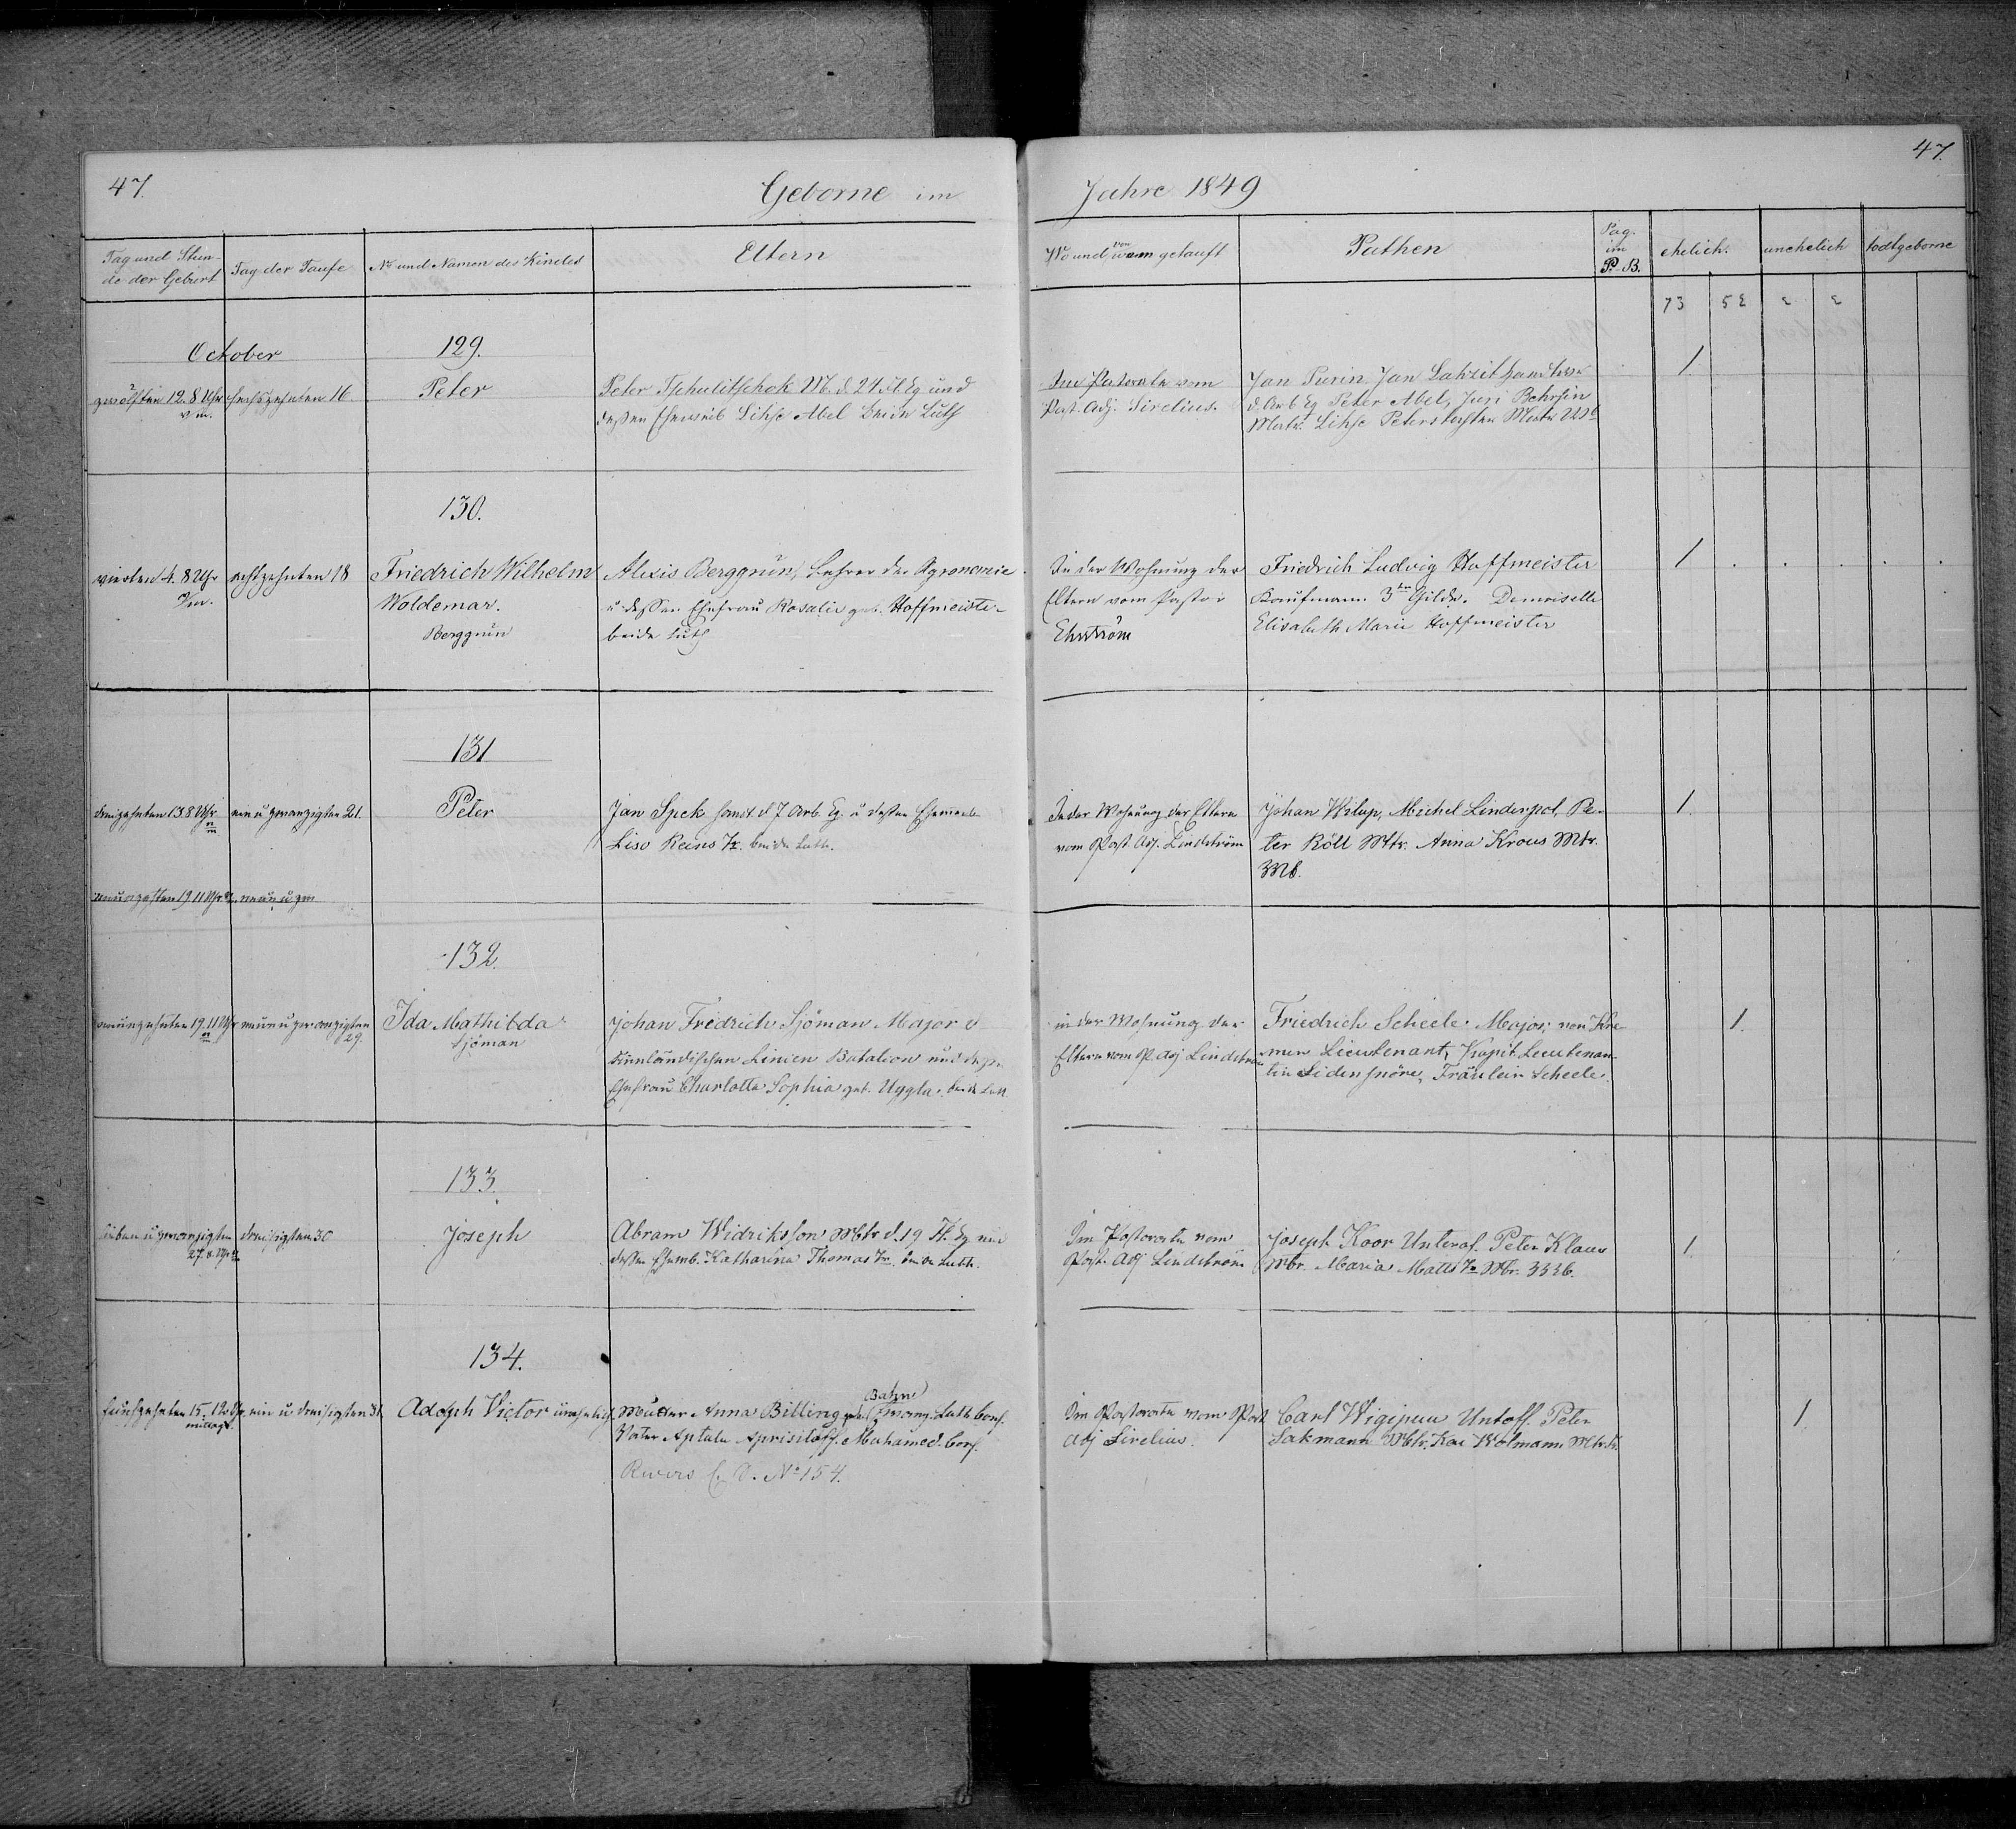 47.
Geborne im
Jahre 1849
47.
Tag und Stun-
de der Geburt
Tag der Taufe
No und Namen des Kindes
Eltern
Wo und von wem getauft
Pathen
Pag.
im
P. B.
ehelich.
unehelich
todtgeborne
73 52 2 2
October
129.
zwölften 12. 8 Uhr
v m.
sechszehnten 16
Peter
Peter Tschulitschok M. d. 21
deßen Eheweib Lihse Abel beide Luth
Im Pastorate vom
Past. Adj. Sirelius.
Jan Purin Jan Lahzit
d. Arb Eq Peter Abel, Juri Behrsin
Mtr. Lihse Peters
1
130.
vierten 4. 8 Uhr
Vm.
achtzehnten 18
Friedrich Wilhelm
Woldemar.
Berggrün
Alexis Berggrün, Lehrer der Agronomie
u. dessen Ehefrau Rosalie geb. Hoffmeister
beide luth
In der Wohnung der
Eltern vom Pastor
Ehrström
Friedrich Ludvig Hoffmeister
Kaufmann 3ter Gilde. Demoiselle
Elisabeth Marie Hoffmeister
1
131
dreizehnten 13. 8 Uhr
ein u zwanzigsten 21.
Peter
Jan Speck d 7 Arb. Eq. u deßen Eheweib
Liso Reins Tr. beide Luth.
In der Wohnung der Eltern
vom Past. Adj. Lindström
Johan Wilup, Michel Linderpol, Pe-
ter Röll Mtr. Anna Kraus Mtr.
Mb.
1.
neunzehnten 19 11 Uhr
neun u zwa
132.
neunzehnten 19. 11 Uhr
neun u zwanzigsten
29.
Ida Mathilda
Sjöman
Johan Fredrich Sjöman Major d
Finnländischen Linien Batalion und deßen
Ehefrau Charlotta Sophia geb. Uggla. beide Luth
in der Wohnung der
Eltern vom P. Adj Lindström
Friedrich Scheele Major; von Kre-
mer Lieutenant, Kapit. Leeutenan-
tin Lidensnöre, Fräulein Scheele.
1.
133.
sieben u zwanzigsten
27. 8 Uhr
dreißigsten 30
Joseph
Abram Widriksson Mtr d. 19 Fl. Eq und
deßen Ehewb. Katharina Thomas Tr. beide Luth.
Im Pastorate vom
Past. Adj Lindström
Joseph Koor Unterof. Peter Klaus
Mtr. Maria Matts Tr. Mtr.
1.
134.
funfzehnten 15. 12 Uhr
mittags.
ein u dreißigsten 31
Adolph Victor unehelich
Mutter Anna Billing Luth Conf.
Vater Aptula Aprisitoff. Muhamed. Conf.
No 154.
Im Pastorate vom Past
Adj Sirelius.
Carl Wigipuu Untoff. Peter
Sakmann Mtr. Kai Wolmann Mtr. Tr.
1.